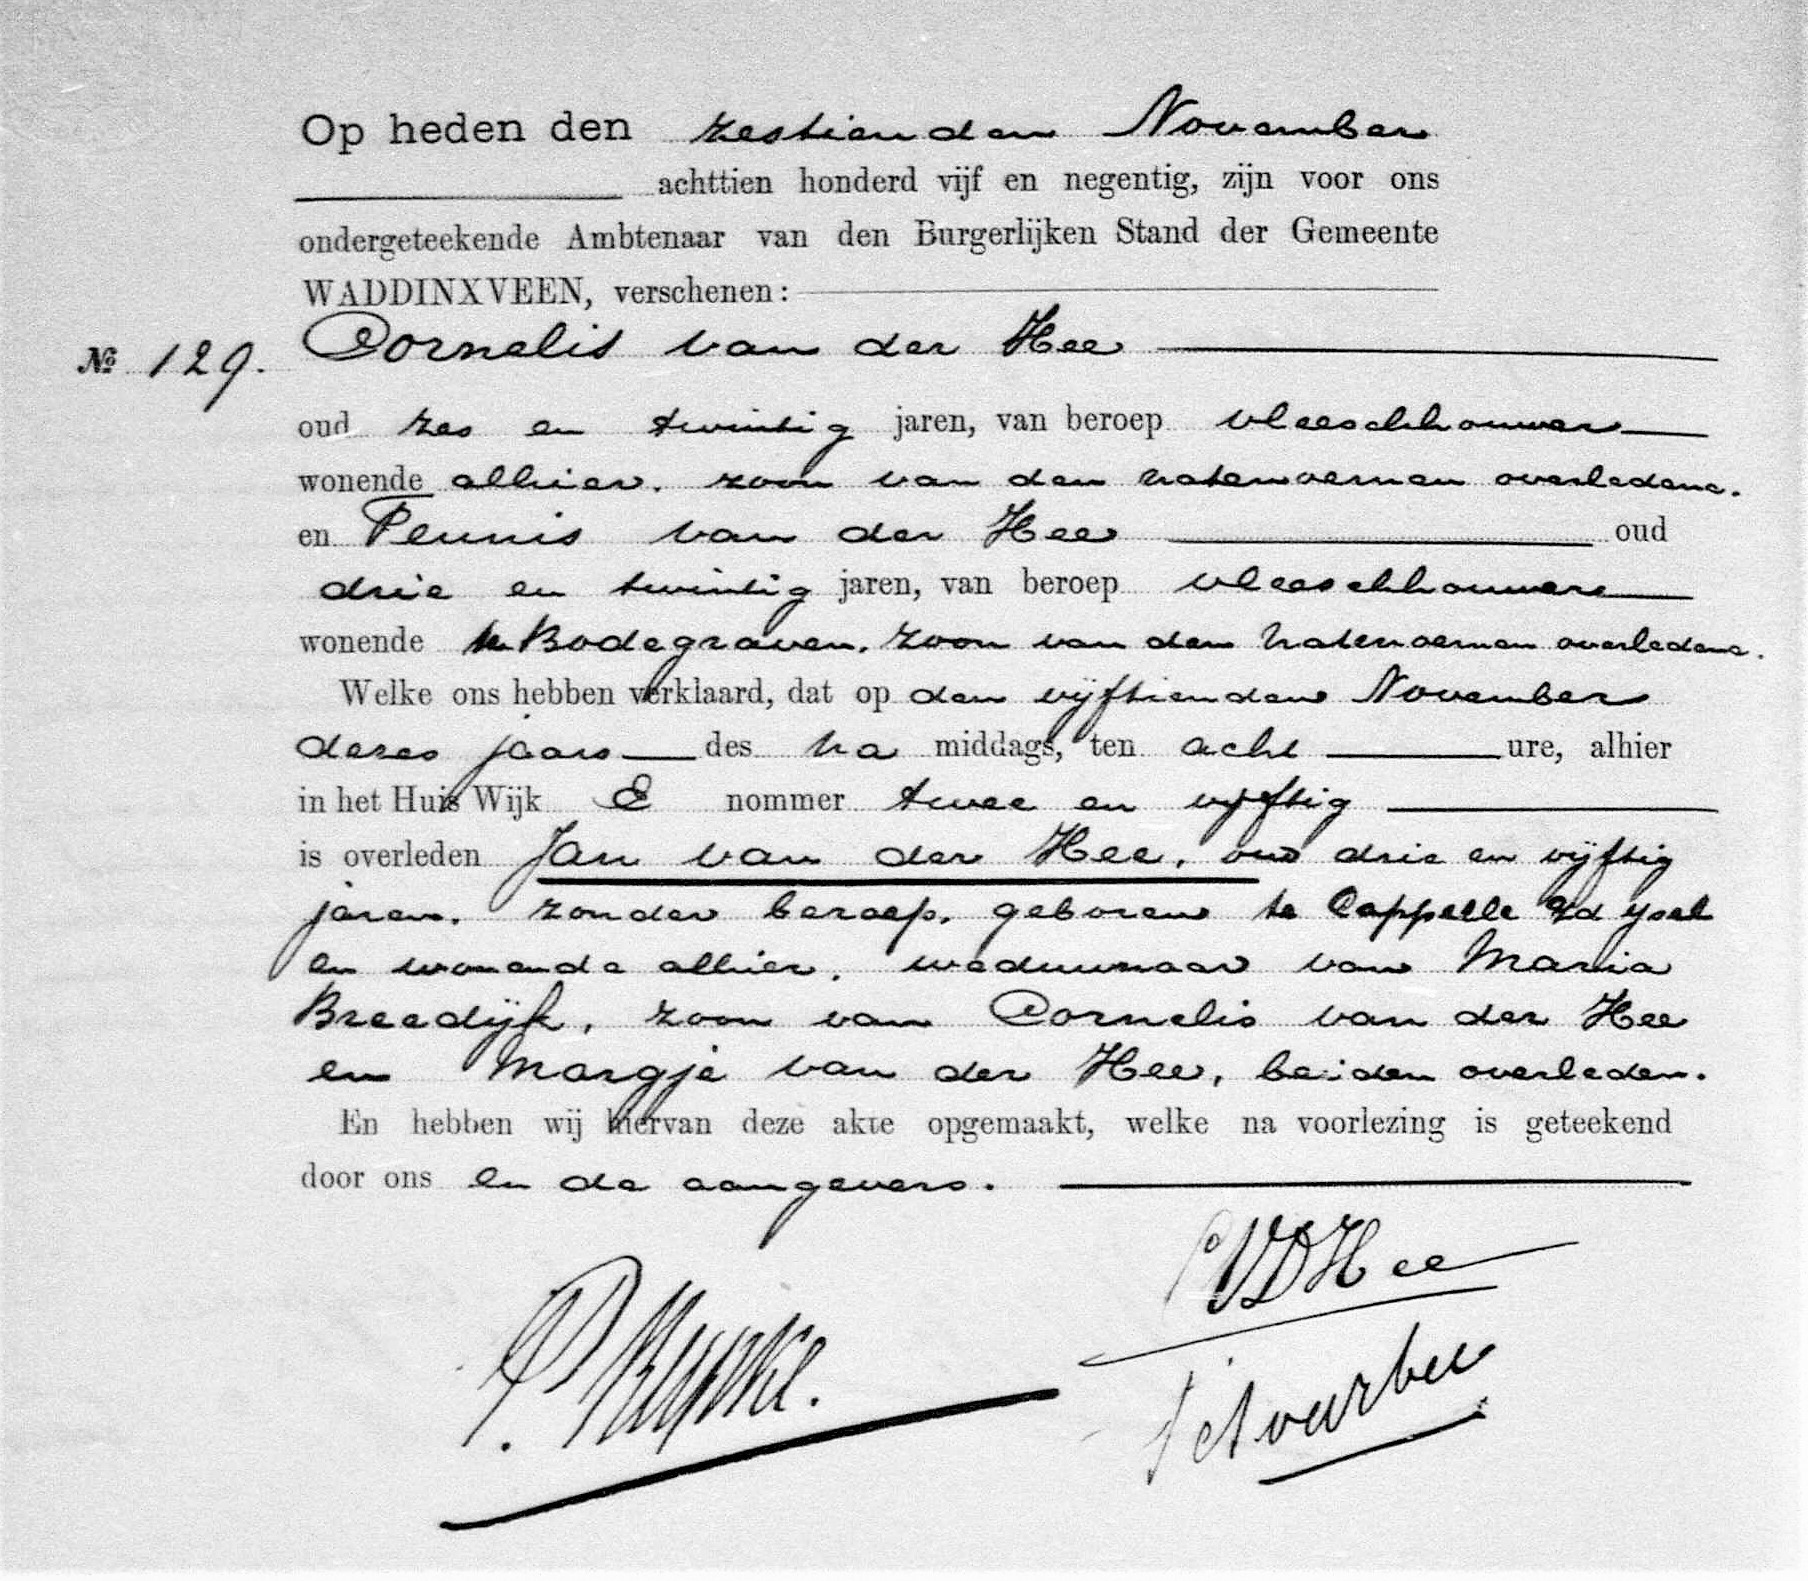 Op heden den zestienden November
achttien honderd vijf en negentig, zijn voor ons
ondergeteekende Ambtenaar van den Burgerlijken Stand der Gemeente
WADDINXVEEN, verschenen:
No 129. Cornelis van der Hee
oud zes en twintig jaren, van beroep vleeschhouwer
wonende alhier, zoon van den natenoemen overledene.
en Teunis van der Hee oud
drie en twintig jaren, van beroep vleeschhouwer
wonende te Bodegraven, zoon van den natenoemen overledene.
Welke ons hebben verklaard, dat op den vijftienden November
dezes jaars des na middags, ten acht ure, alhier
in het Huis Wijk E nommer twee en vijftig
is overleden Jan van der Hee, oud drie en vijftig
jaren, zonder beroep, geboren te Cappelle a/d ysel
en wonende alhier, weduwnaar van Maria
Breedijk, zoon van Cornelis van der Hee
en Margje van der Hee, beiden overleden.
En hebben wij hiervan deze akte opgemaakt, welke na voorlezing is geteekend
door ons en de aangevers.
C VD Hee